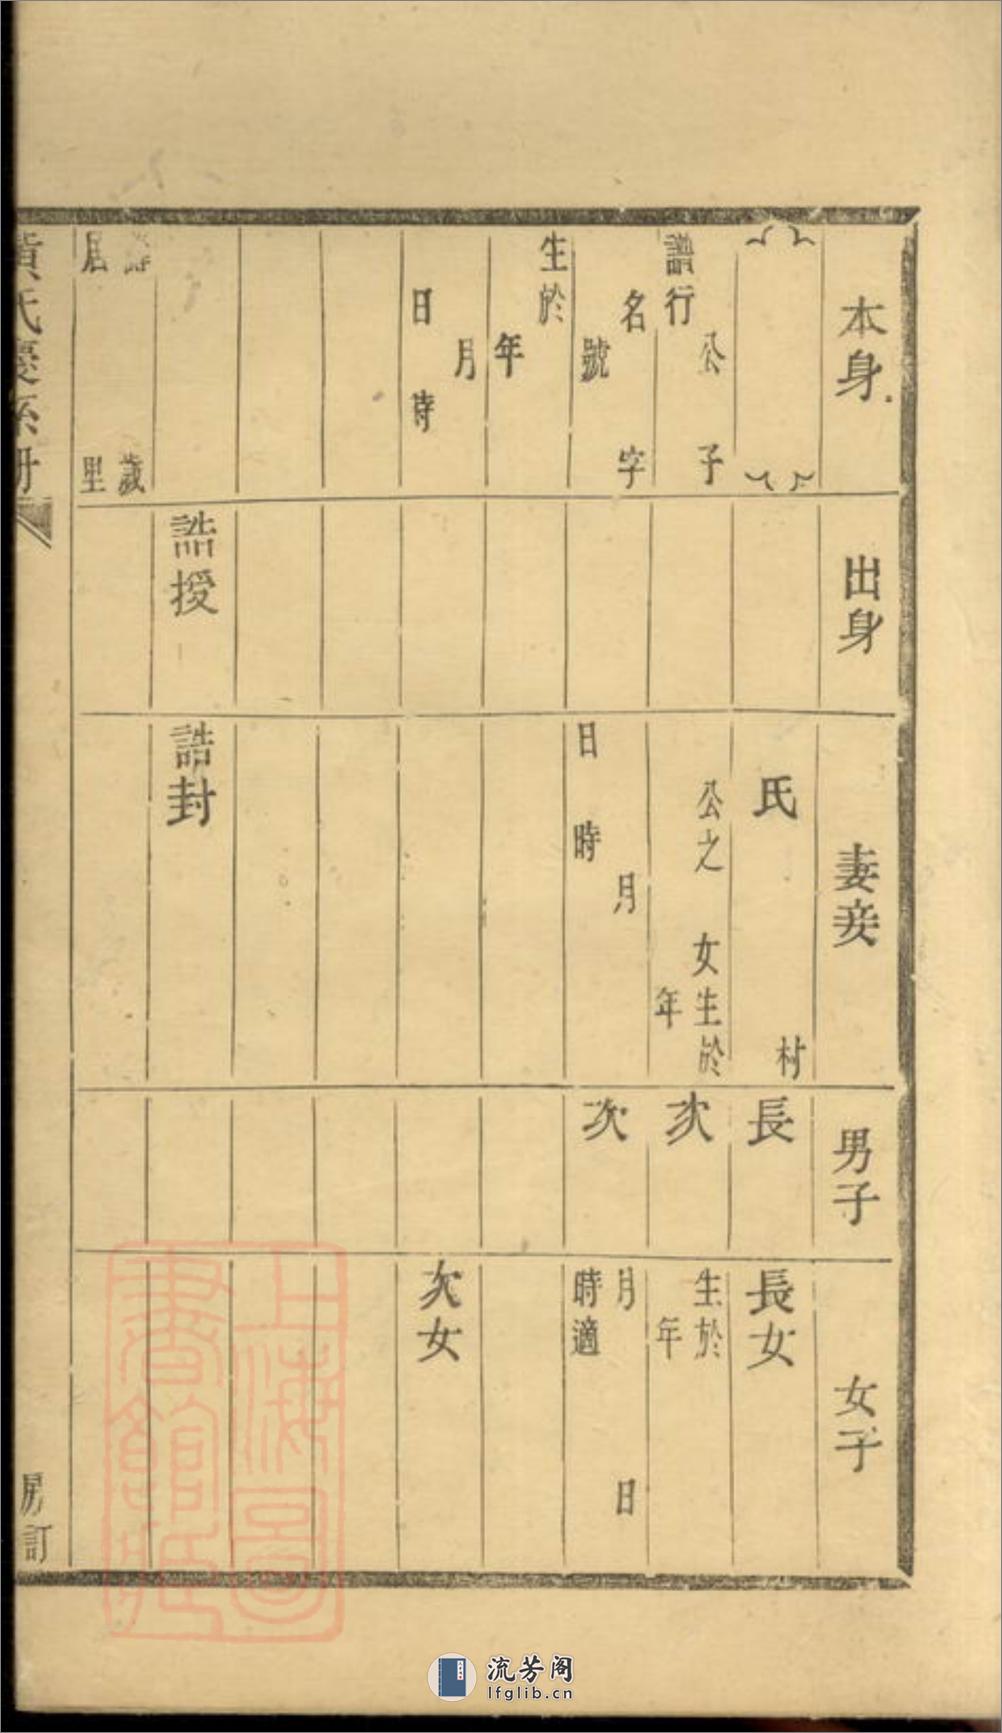 本身
譜行 公 子
名 字
號
生於
年
月
日 時
壽 歲
居 里
出身
誥授
妻妾
氏 村
公之 女生於
年
月
日 時
誥封
男子
長
次
次
女子
長女
生於
年
月 日
時適
次女
黃氏慶系册
房訂
上海圖
書館藏
流芳阁
lfglib.cn